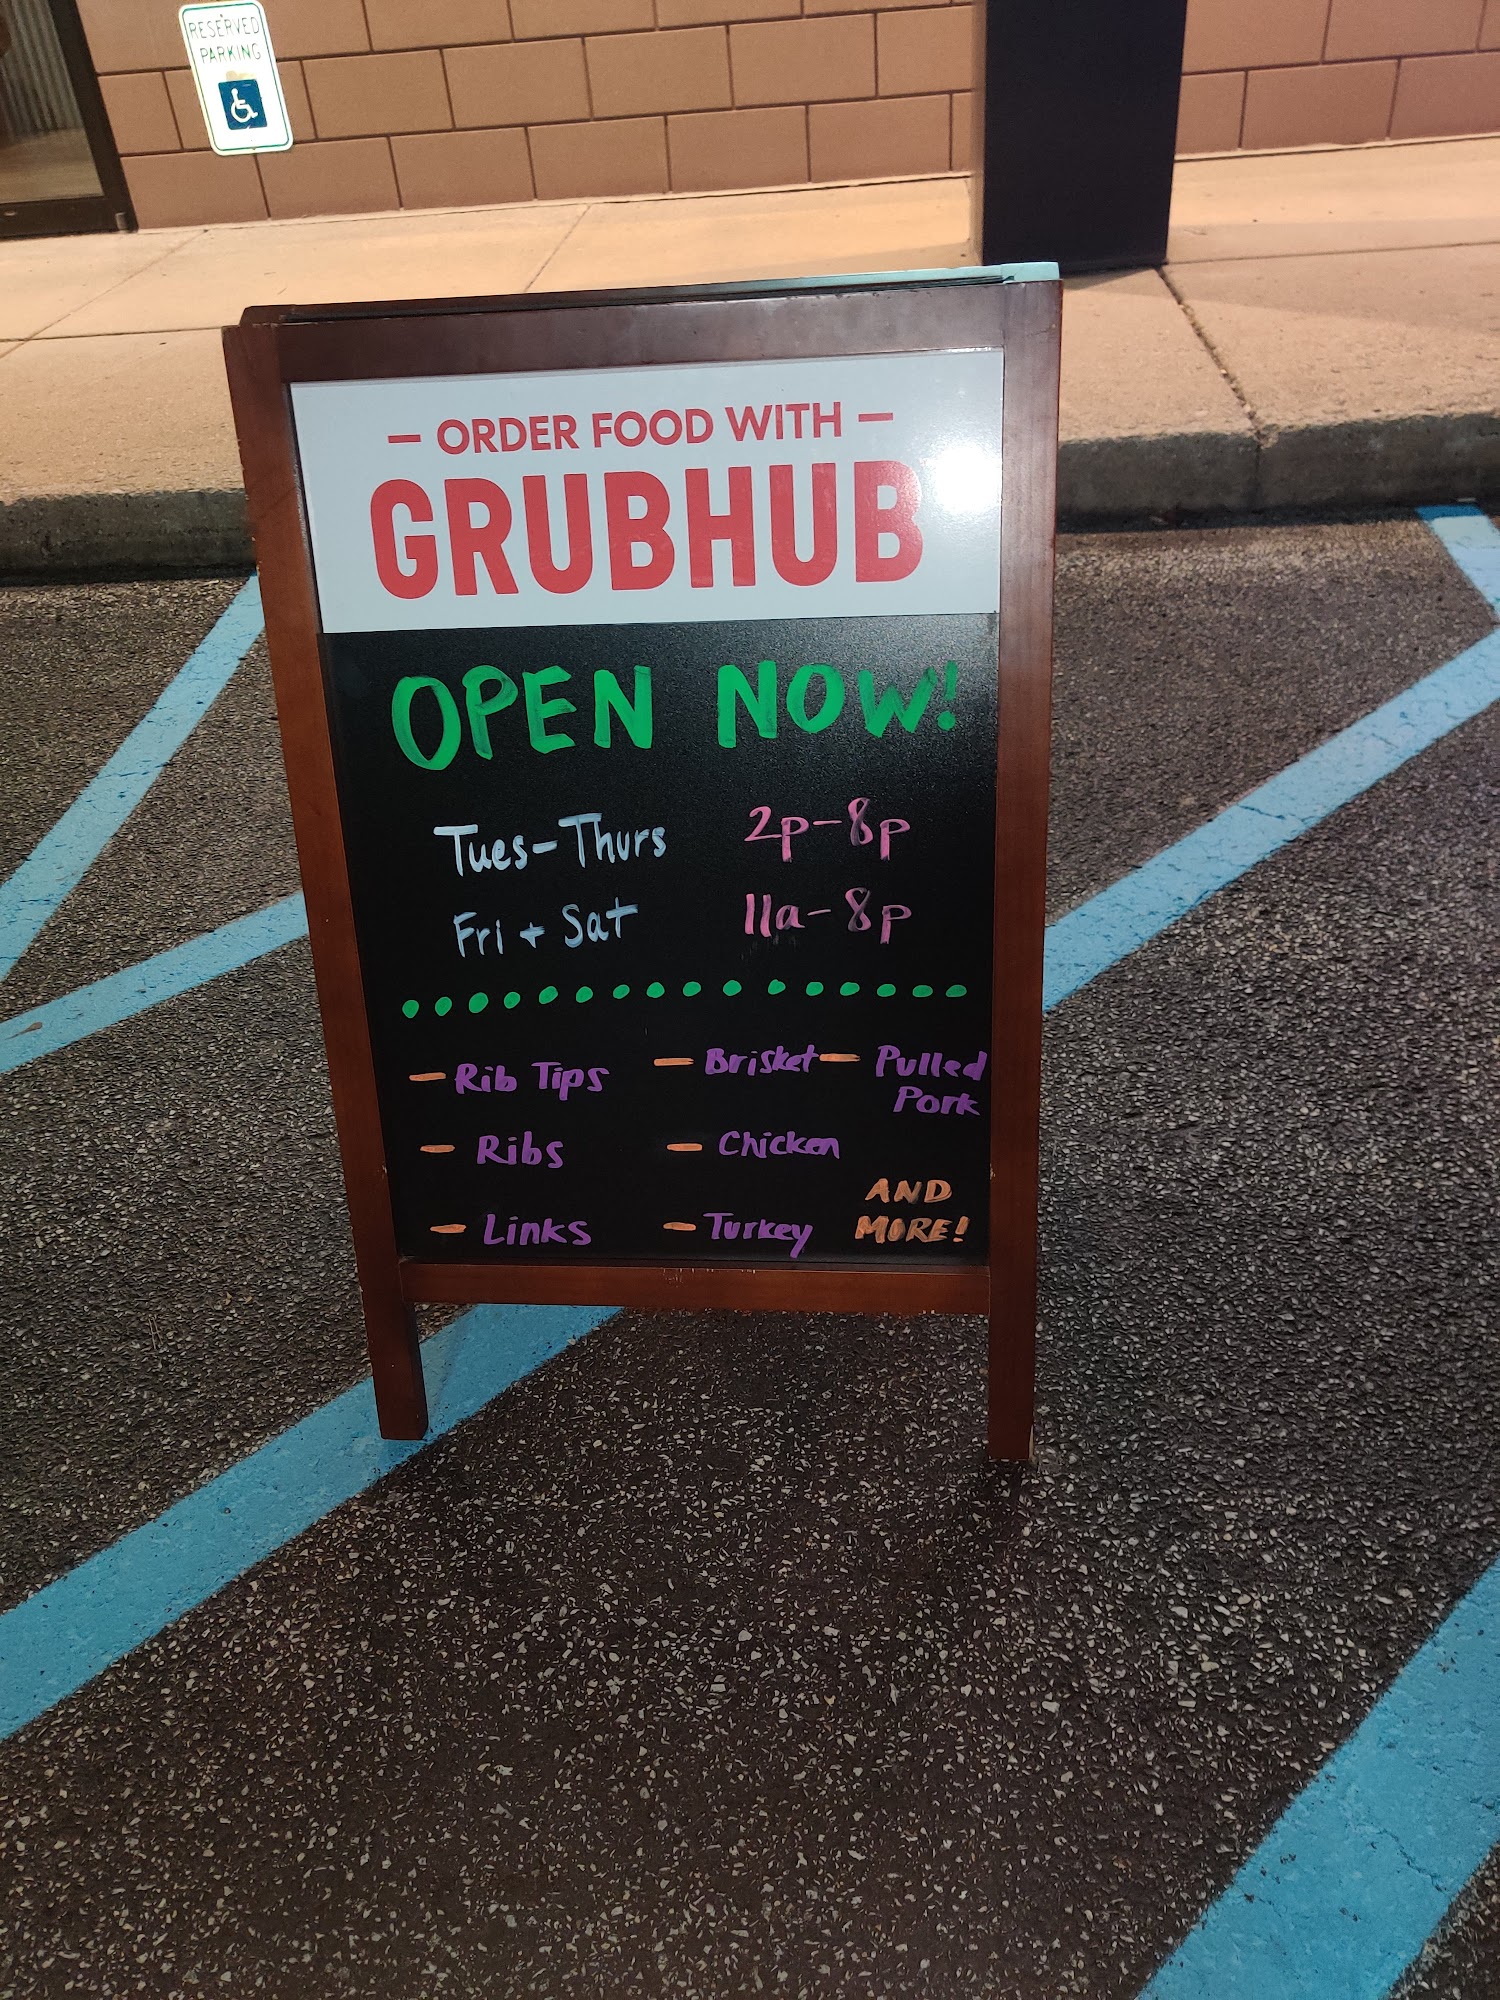 RESERVED
PARKING
— ORDER FOOD WITH —
GRUBHUB
OPEN NOW!
Tues-Thurs 2p-8p
Fri + Sat 11a-8p
- Rib Tips - Brisket - Pulled
Pork
- Ribs - Chicken
AND
- Links - Turkey MORE!